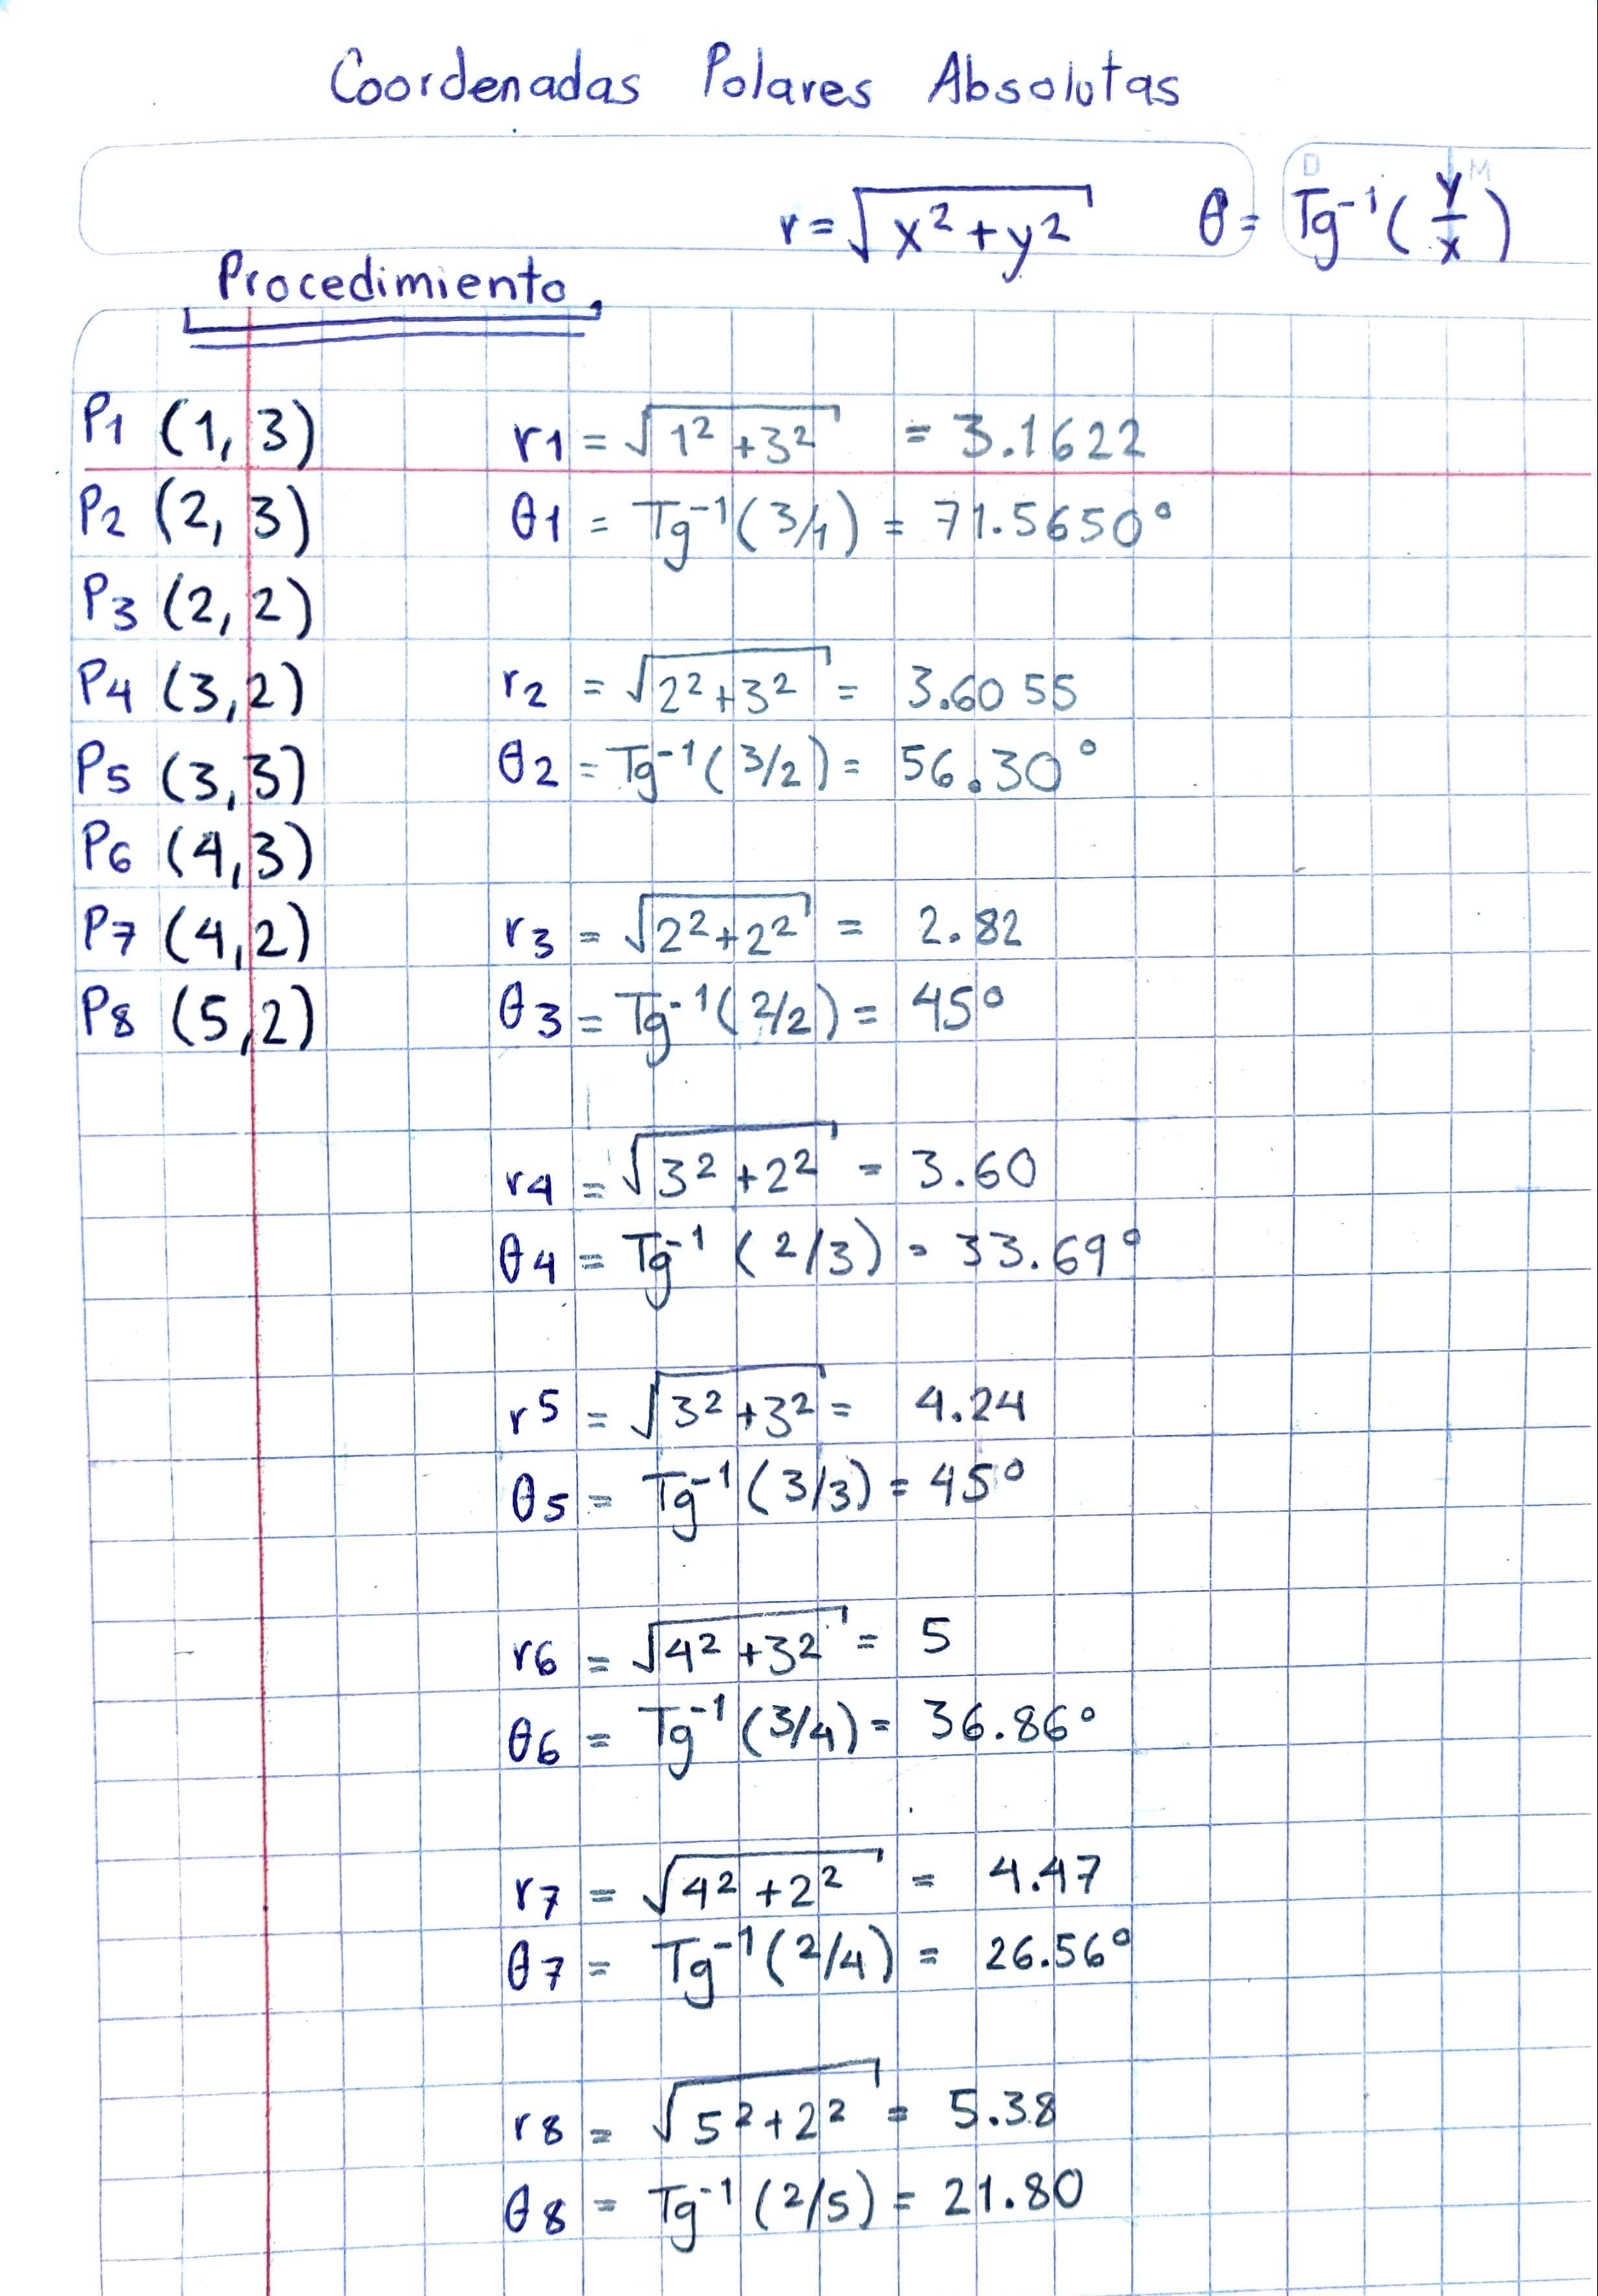 Coordenadas Polares Absolutas
D M
r = √x² + y² θ = Tg⁻¹ (y/x)
Procedimiento
P1 (1, 3)
P2 (2, 3)
P3 (2, 2)
P4 (3, 2)
P5 (3, 3)
P6 (4, 3)
P7 (4, 2)
P8 (5, 2)
r1 = √1² + 3² = 3.1622
θ1 = Tg⁻¹ (3/1) = 71.5650°
r2 = √2² + 3² = 3.6055
θ2 = Tg⁻¹ (3/2) = 56.30°
r3 = √2² + 2² = 2.82
θ3 = Tg⁻¹ (2/2) = 45°
r4 = √3² + 2² = 3.60
θ4 = Tg⁻¹ (2/3) = 33.69°
r5 = √3² + 3² = 4.24
θ5 = Tg⁻¹ (3/3) = 45°
r6 = √4² + 3² = 5
θ6 = Tg⁻¹ (3/4) = 36.86°
r7 = √4² + 2² = 4.47
θ7 = Tg⁻¹ (2/4) = 26.56°
r8 = √5² + 2² = 5.38
θ8 = Tg⁻¹ (2/5) = 21.80